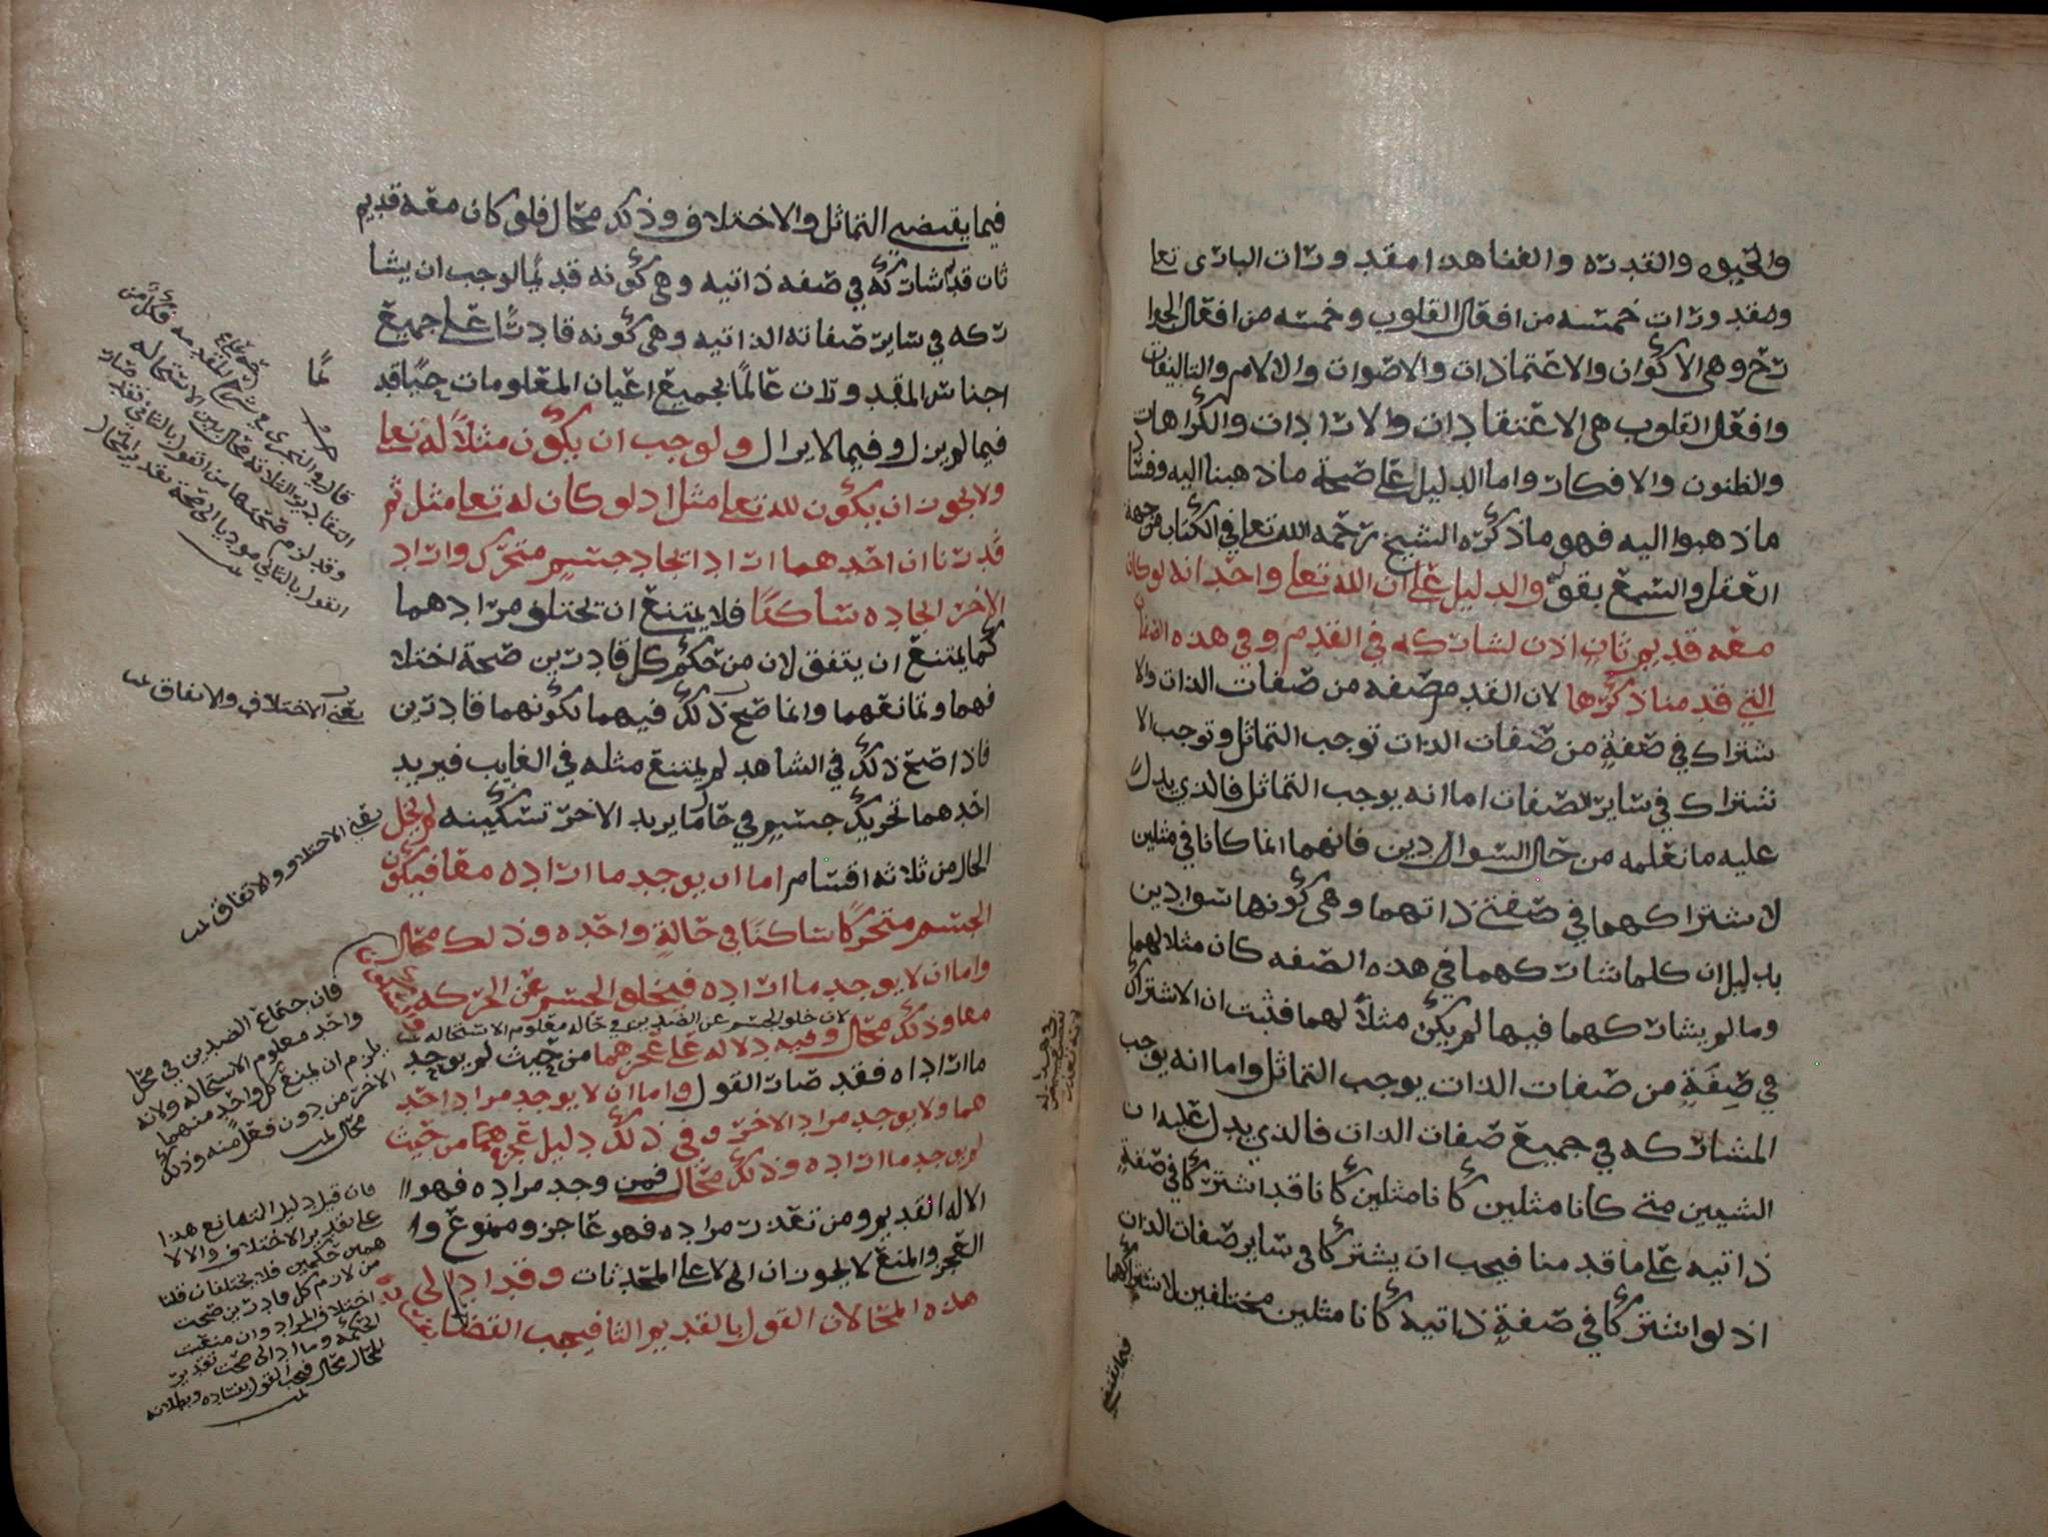 والحيوه والقدره والفنا هذا مقدورات الباري تعا
ومقدورات خمسه من افعال القلوب وخمسه من افعال الجوا
رح وهي الاكوان والاعتمادات والاصوات والالام والتاليفات
وافعال القلوب هي الاعتقادات والارادات والكراهات
والظنون والافكار واما الدليل على صحة ما ذهبنا اليه وفساد
ما ذهبوا اليه فهو ما ذكره الشيخ رحمه الله تعا في الكتاب من جهة
العقل والسمع بقوله والدليل على ان الله تعلى واحد انه لو كان
معه قديم ثان اذن لشاركه في القدم وفي هذه الصفات
التي قدمنا ذكرها لان القدم صفه من صفات الذات والا
شتراك في صفةٍ من صفات الذات توجب التماثل وتوجب الا
شتراك في ساير الصفات اما انه يوجب التماثل فالذي يدل
عليه ما نعلمه من حال السوادين فانهما انما كانا في مثلين
لاشتراكهما في صفة ذاتهما وهي كونهما سوادين
بدليل ان كلما شاركهما في هذه الصفه كان مثلا لهما
وما لم يشاركهما فيها لم يكن مثلاً لهما فثبت ان الاشتراك
في صِفَةٍ من صفات الذات يوجب التماثل واما انه يوجب
المشاركه في جميع صفات الذات فالذي يدل عليه ان
الشيين متى كانا مثلين كانا مثلين كانا قد اشتركا في صفةٍ
ذاتيه على ما قدمنا فيجب ان يشتركا في ساير صفات الذات
اذ لو اشتركا في صفةٍ ذاتيه كانا مثلين مختلفين لاشتراكهما
فيما يقتضي
فيما يقتضي التماثل والاختلاف وذلك محال فلو كان معه قديم
ثان قديم لشاركه في صفه ذاتيه وهي كونه قديمًا لوجب ان يشا
ركه في ساير صفاته الذاتيه وهي كونه قادرًا على جميع
اجناس المقدورات عالمًا بجميع اعيان المعلومات حيًّا قد
فيما لم يزل وفيما لا يزال ولوجب ان يكون مثلاً له تعا
ولا يجوز ان يكون لله تعلى مثل اذ لو كان له تعا مثل ثم
قدرنا ان احدهما اراد ايجاد جسم متحرك واراد
الاخر ايجاده ساكنًا فلا يمتنع ان تختلف مرادهما
كما يمتنع ان يتفق لان من حكم كل قادرين صحة اختلا
فهما وتمانعهما وانما صح ذلك فيهما لكونهما قادرين
فاذا صح ذلك في الشاهد لم يمتنع مثله في الغايب فيريد
احدهما تحريك جسم في حال ما يريد الاخر تسكينه لم يخل
الحال من ثلاثه اقسام اما ان يوجد ما اراده معا فيكون
الجسم متحركًا ساكنًا في حالةٍ واحده وذلك محال
واما ان لا يوجد ما اراده فيخلو الجسم عن الحركه
لان خلو الجسم عن الضدين في حاله معلوم الاستحاله
معا وذلك محال وفيه دلاله على عجزهما من حيث لم يوجد
ما اراداه فقد صار القول واما ان لا يوجد مراد احد
هما ولا يوجد مراد الاخر وفي ذلك دليل عجزهما من حيث
لم يوجد ما اراده وذلك محال فمن وجد مراده فهو
الاله القديم ومن تعذر مراده فهو عاجز وممنوع وا
العجز والمنع لا يجوزان الى لا على المحدثات وقد ادا الى
هذه المحالات القول بالقديم الثا فيجب القضا
يعني الاختلاف والاتفاق تمت
يعني الاختلاف والاتفاق تمت
فان اجتماع الضدين في محل
واحد معلوم الاستحاله ولانه
يلزم ان يمنع كل واحد منهما
الاخر من دون فعل منه وذلك
محال تمت
فان قيل دليل التمانع هذا
على تقدير الاختلاف والالا
همين حكيمين فلا يختلفان قلنا
من لازم كل قادرين صحت
اختلاف المراد وان منعت
الحكمه وما ادا الى صحت تقدير
المحال محال فيجب القول بفساده وبطلانه
تمت